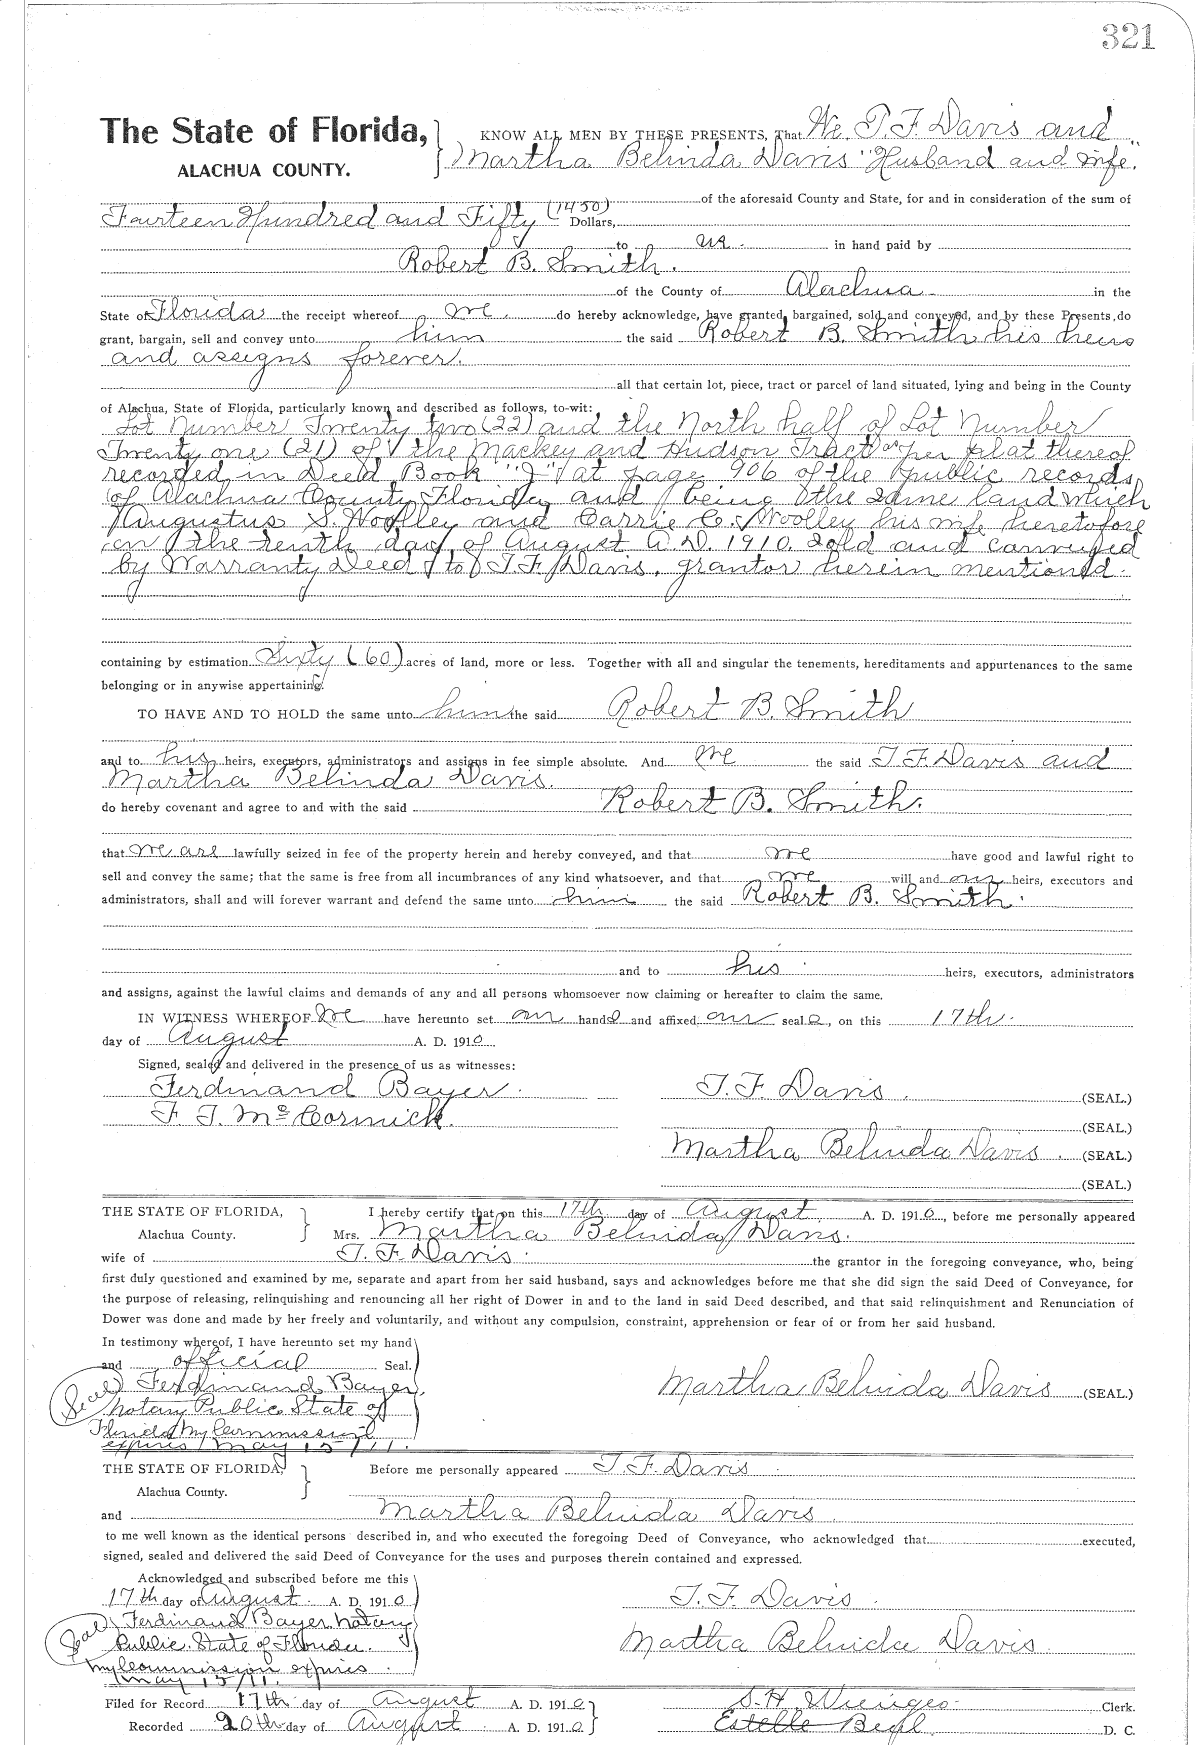 321
The State of Florida, KNOW ALL MEN BY THESE PRESENTS, That We T. F. Davis and
ALACHUA COUNTY. Martha Belinda Davis "Husband and wife"
of the aforesaid County and State, for and in consideration of the sum of
Fourteen Hundred and Fifty (1450) Dollars,
to us in hand paid by
Robert B. Smith.
of the County of Alachua in the
State of Florida the receipt whereof we do hereby acknowledge, have granted, bargained, sold and conveyed, and by these Presents do
grant, bargain, sell and convey unto him the said Robert B. Smith his heirs
and assigns forever.
all that certain lot, piece, tract or parcel of land situated, lying and being in the County
of Alachua, State of Florida, particularly known and described as follows, to-wit:
Lot Number Twenty two (22) and the North half of Lot Number
Twenty one (21) of the Mackey and Hudson Tract as per plat thereof
recorded in Deed Book "J" at page 906 of the public records
of Alachua County Florida and being the same land which
Augustus S. Woolley and Carrie C. Woolley his wife heretofore
on the tenth day of August A. D. 1910. sold and conveyed
by Warranty Deed to T. F. Davis, grantor herein mentioned.
containing by estimation Sixty (60) acres of land, more or less. Together with all and singular the tenements, hereditaments and appurtenances to the same
belonging or in anywise appertaining.
TO HAVE AND TO HOLD the same unto him the said Robert B. Smith
and to his heirs, executors, administrators and assigns in fee simple absolute. And we the said T. F. Davis and
Martha Belinda Davis.
do hereby covenant and agree to and with the said Robert B. Smith.
that we are lawfully seized in fee of the property herein and hereby conveyed, and that we have good and lawful right to
sell and convey the same; that the same is free from all incumbrances of any kind whatsoever, and that we will and our heirs, executors and
administrators, shall and will forever warrant and defend the same unto him the said Robert B. Smith.
and to his heirs, executors, administrators
and assigns, against the lawful claims and demands of any and all persons whomsoever now claiming or hereafter to claim the same.
IN WITNESS WHEREOF We have hereunto set our hands and affixed our seals, on this 17th.
day of August A. D. 1910.
Signed, sealed and delivered in the presence of us as witnesses:
Ferdinand Bayer. T. F. Davis. (SEAL.)
F. J. McCormick. (SEAL.)
Martha Belinda Davis. (SEAL.)
(SEAL.)
THE STATE OF FLORIDA, I hereby certify that on this 17th. day of August, A. D. 1910, before me personally appeared
Alachua County. Mrs. Martha Belinda Davis.
wife of T. F. Davis. the grantor in the foregoing conveyance, who, being
first duly questioned and examined by me, separate and apart from her said husband, says and acknowledges before me that she did sign the said Deed of Conveyance, for
the purpose of releasing, relinquishing and renouncing all her right of Dower in and to the land in said Deed described, and that said relinquishment and Renunciation of
Dower was done and made by her freely and voluntarily, and without any compulsion, constraint, apprehension or fear of or from her said husband.
In testimony whereof, I have hereunto set my hand
and official Seal.
(Seal) Ferdinand Bayer, Martha Belinda Davis (SEAL.)
Notary Public State of
Florida My Commission
expires May 15/11.
THE STATE OF FLORIDA, Before me personally appeared T. F. Davis.
Alachua County.
and Martha Belinda Davis.
to me well known as the identical persons described in, and who executed the foregoing Deed of Conveyance, who acknowledged that executed,
signed, sealed and delivered the said Deed of Conveyance for the uses and purposes therein contained and expressed.
Acknowledged and subscribed before me this
17th day of August. A. D. 1910 T. F. Davis.
(Seal) Ferdinand Bayer Notary
Public. State of Florida. Martha Belinda Davis.
My Commission expires.
May 15/11.
Filed for Record 17th. day of August A. D. 1910 S. H. Wienges. Clerk.
Recorded 20th day of August. A. D. 1910 Estelle D. C.